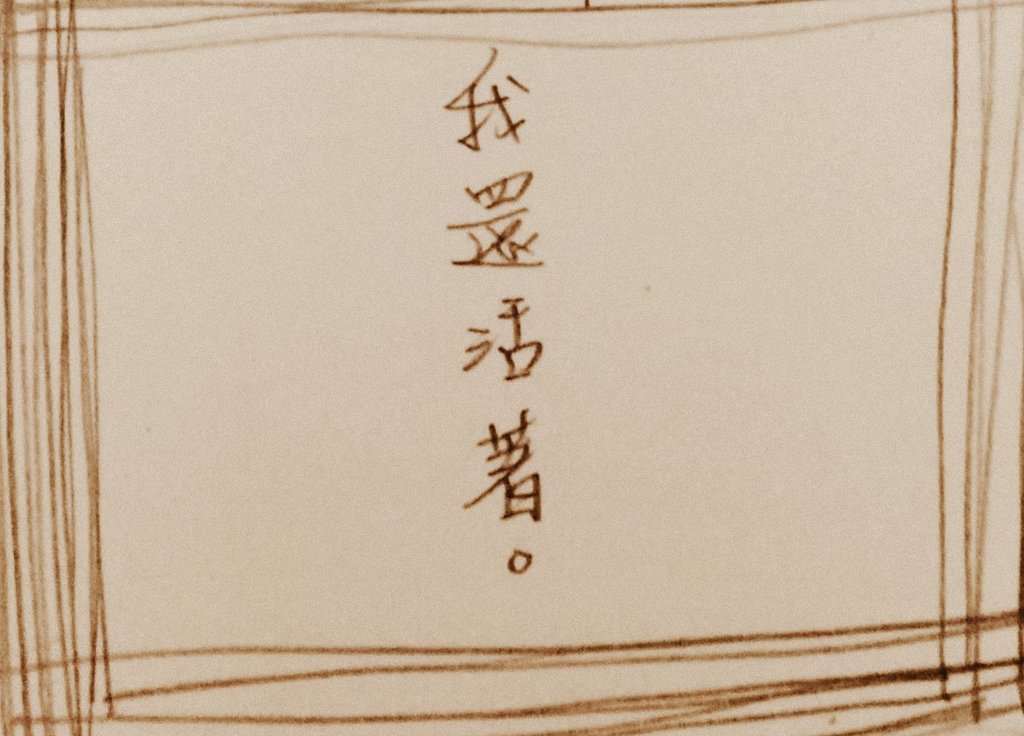 我還活著。